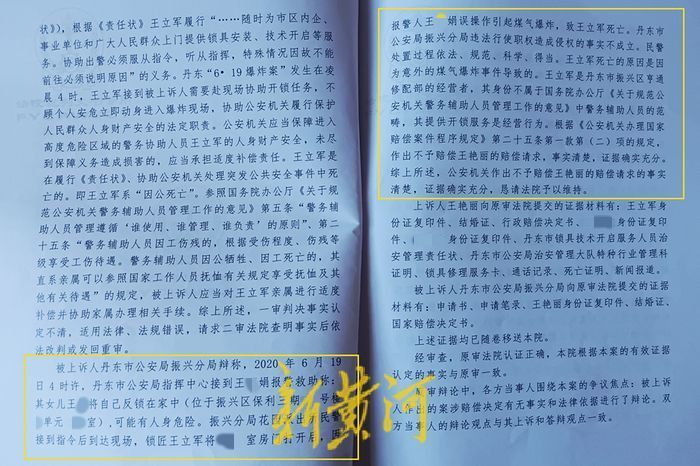 状》），根据《责任状》王立军履行“……随时为市区内企、
事业单位和广大人民群众上门提供锁具安装、技术开启等服
务。协助出警必须服从指挥，听从指挥，特殊情况因故不能
前往必须说明原因”的义务。丹东“6·19爆炸案”发生在凌
晨4时，王立军接到被上诉人需要赴现场协助开锁任务，不
顾个人安危立即动身进入爆炸现场，协助公安机关履行保护
人民群众人身财产安全的法定职责。公安机关应当保障进入
高度危险区域的警务协助人员王立军的人身财产安全，未尽
到保障义务造成损害的，应当承担适度补偿责任。王立军是
在履行《责任状》、协助公安机关处理突发公共安全事件中死
亡的。即王立军系“因公死亡”。参照国务院办公厅《关于规
范公安机关警务辅助人员管理工作的意见》第五条“警务辅
助人员管理遵循‘谁使用、谁管理、谁负责’的原则”、第二
十五条“警务辅助人员因工伤残的，根据受伤程度、伤残等
级享受工伤待遇。警务辅助人员因公牺牲、因工死亡的，其
直系亲属可以参照国家工作人员抚恤有关规定享受抚恤及其
他有关待遇”的规定，被上诉人应当对王立军亲属进行适度
补偿并协助家属办理相关手续。综上所述，一审判决事实认
定不清，适用法律、法规错误，请求二审法院查明事实后依
法改判或发回重审。
被上诉人丹东市公安局振兴分局辩称，2020年6月19
日4时许，丹东市公安局指挥中心接到王 娟报警救助称：
其女儿王 将自己反锁在家中（位于振兴区保利三期 号楼
单元 室），可能有人身危险。振兴分局花园派出所民警
接到指令后到达现场，锁匠王立军将 室房门打开后，因
报警人王 娟误操作引起煤气爆炸，致王立军死亡。丹东市
公安局振兴分局违法行使职权造成侵权的事实不成立。民警
处置过程依法、规范、科学、得当。王立军死亡的原因是因
为意外的煤气爆炸事件导致的。王立军是丹东市振兴区亨通
修配部的经营者，其身份不属于国务院办公厅《关于规范公
安机关警务辅助人员管理工作的意见》中警务辅助人员的范
畴，其提供开锁服务是经营行为。根据《公安机关办理国家
赔偿案件程序规定》第二十五条第一款第（二）项的规定，
作出不予赔偿王艳丽的赔偿请求，事实清楚，证据确实充分。
综上所述，公安机关作出不予赔偿王艳丽的赔偿请求的事实
清楚，证据确实充分，恳请法院予以维持。
上诉人王艳丽向原审法院提交的证据材料有：王立军身
份证复印件、结婚证、行政赔偿决定书、 身份证复印
件、 身份证复印件、丹东市锁具技术开启服务人员治
安管理责任状、丹东市公安局治安管理大队特种行业管理科
证明、锁具修理服务卡、通话记录、死亡证明、新闻报道。
被上诉人丹东市公安局振兴分局向原审法院提交的证据
材料有：申请书、申请笔录、王艳丽身份证复印件、结婚证、
国家赔偿决定书。
上述证据均已随卷移送本院。
经审查，原审法院认证正确，本院根据本案的有效证据
认定的事实与原审一致。
审辩论中，各方当事人围绕本案的争议焦点：被上诉
人作出的案涉赔偿决定有无事实和法律依据进行了辩论。双
方当事人的辩论观点与其上诉和答辩观点一致。
新黄河